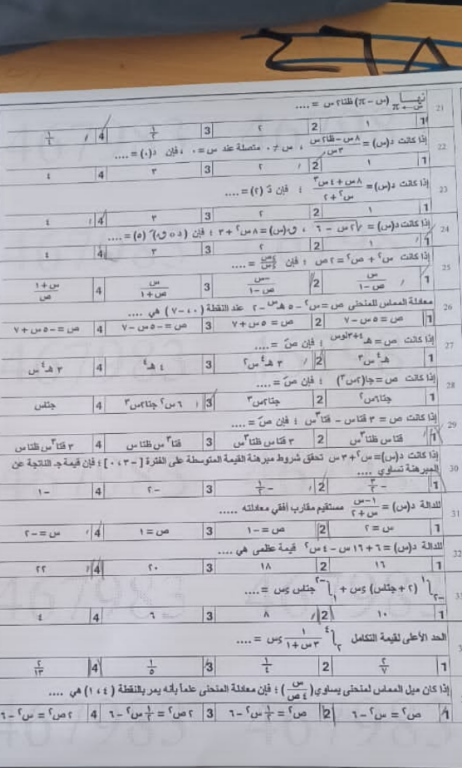 21 نهـــا س←π (س − π) ظتا٢س = ....
1 ١ 2 ٢ 3 ١/٢ 4 ١/
22 إذا كانت د(س) = ٨س − ظا٢س / ٣س ، س ≠ ٠ متصلة عند س = ٠ ، فإن د(٠) = ....
1 ١ 2 ٢ 3 ٣ 4 ٤
23 إذا كانت د(س) = ٨س + ٤س٣ / س٢ + ٢ ؛ فإن دَ (٢) = ....
1 ١ 2 ٢ 3 ٣ 4 ٤
24 إذا كانت د(س) = ٢س − ٦ ، ق(س) = ٨س٢ + ٣ ؛ فإن (د ٥ ق)َ (٥) = ....
1 ١ 2 ٢ 3 ٣ 4 ٤
25 إذا كانت س٢ + ص٢ = ٢ص ؛ فإن ءص/ءس = ....
1 س/ص−١ 2 −س/ص−١ 3 س/ص+١ 4 س+١/ص
26 معادلة المماس للمنحنى ص = س٢ − ٥هـس − ٢ عند النقطة (٠، −٧) هي ....
1 ص = ٥س − ٧ 2 ص = ٥س + ٧ 3 ص = −٥س − ٧ 4 ص = −٥س + ٧
27 إذا كانت ص = هـ٤+٣لوس ؛ فإن صَ = ....
1 هـ٤س٣ 2 ٣هـ٤س٢ 3 ٤هـ٤ 4 ٣هـ٤س
28 إذا كانت ص = جا(٢س٣) ؛ فإن صَ = ....
1 جتا٦س٢ 2 جتا٢س٣ 3 ٦س٢جتا٢س٣ 4 جتاس
29 إذا كانت ص = ٣قتاس − قتا٣س ؛ فإن صَ = ....
1 قتاس ظتا٣س 2 ٣قتاس ظتا٣س 3 قتا٣س ظتاس 4 ٣قتا٣س ظتاس
30 إذا كانت د(س) = س٢ + ٣س تحقق شروط مبرهنة القيمة المتوسطة على الفترة [−٣، ٠] ؛ فإن قيمة جـ الناتجة عن
المبرهنة تساوي ....
1 −٣/٢ 2 −١/٢ 3 −٢ 4 −١
31 للدالة د(س) = ١−س/س+٢ مستقيم مقارب أفقي معادلته .....
1 س = ٢ 2 ص = −١ 3 ص = ١ 4 س = −٢
32 للدالة د(س) = ٦ + ١٦س − ٤س٢ قيمة عظمى هي ....
1 ١٦ 2 ١٨ 3 ٢٠ 4 ٢٢
∫ (٢ + جتاس) ءس + ∫ جتاس ءس = ....
1 ١٠ 2 ٨ 3 ٦ 4 ٤
الحد الأعلى لقيمة التكامل ∫ ١/٣س+١ ءس = ....
1 ٢/٧ 2 ١/٤ 3 ١/٥ 4 ٢/١٣
إذا كان ميل المماس لمنحنى يساوي (س/٤ص) ؛ فإن معادلة المنحنى علماً بأنه يمر بالنقطة (٤، ١) هي ....
1 ص٢ = س٢ − ٦ 2 ص٢ = ١/٢س٢ − ٦ 3 ٢ص٢ = ١/٢س٢ − ٦ 4 ٢ص٢ = س٢ − ٦